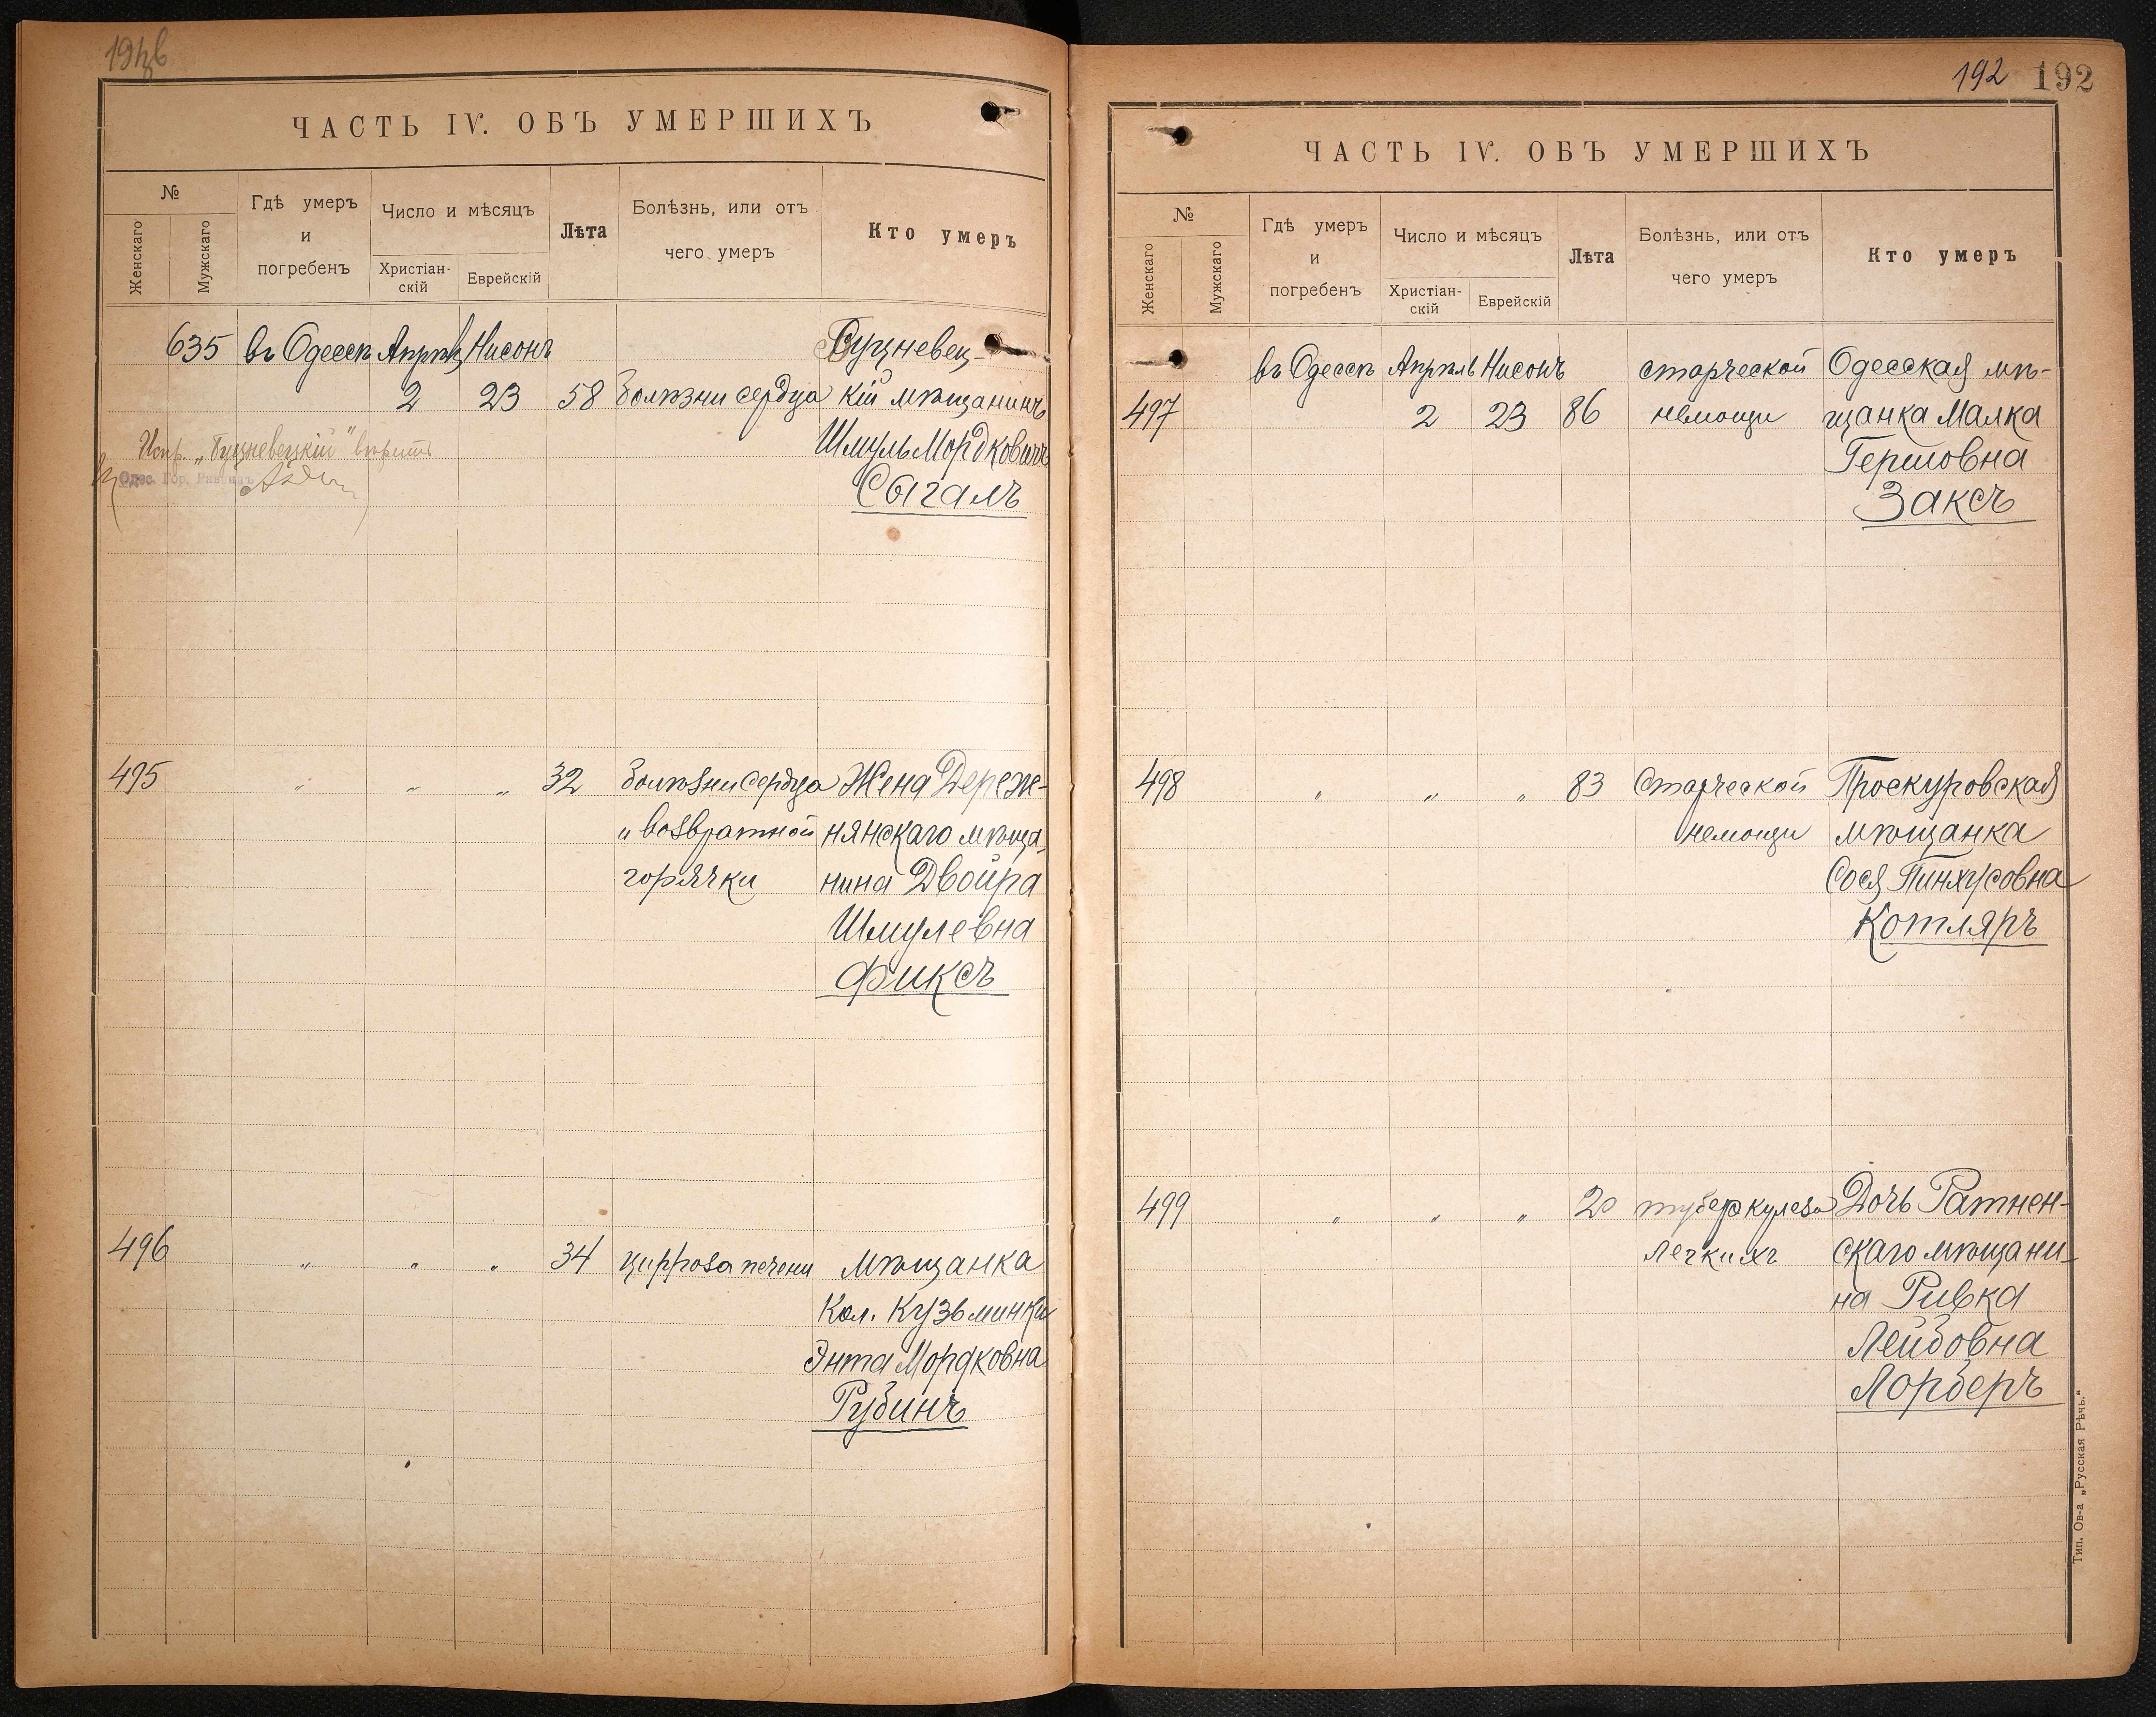 ЧАСТЬ IV. ОБЪ УМЕРШИХЪ
№
Женскаго
Мужскаго
Гдѣ умеръ
и
погребенъ
Число и мѣсяцъ
Христіан-
скій
Еврейскій
Лѣта
Болѣзнь, или отъ
чего умеръ
Кто умеръ
635 въ Одессѣ Апрѣль Нисонъ Бущневец-
2 23 58 болѣзни сердца кій мѣщанинъ
Испр. „Бущневецкій" вѣрить Шмуль Мордковичъ
Одес. Гор. Раввинъ Сыгалъ
495 „ „ „ 32 болѣзни сердца Жена Дереж-
и возвратной нянскаго мѣща-
горячки нина Двойра
Шмулевна
Фиксъ
496 „ „ „ 34 цирроза печени Мѣщанка
Кол. Кузьминки
Энта Мордковна
Рубинъ
192 192
ЧАСТЬ IV. ОБЪ УМЕРШИХЪ
№
Женскаго
Мужскаго
Гдѣ умеръ
и
погребенъ
Число и мѣсяцъ
Христіан-
скій
Еврейскій
Лѣта
Болѣзнь, или отъ
чего умеръ
Кто умеръ
въ Одессѣ Апрѣль Нисонъ старческой Одесская мѣ-
497 2 23 86 немощи щанка Малка
Гершовна
Заксъ
498 „ „ „ 83 Старческой Проскуровская
немощи мѣщанка
Сося Пинхусовна
Котляръ
499 „ „ „ 20 туберкулеза Дочь Ратнен-
легкихъ скаго мѣщани-
на Ривка
Лейбовна
Лорберъ
Тип. Ов-а „Русская Рѣчь."